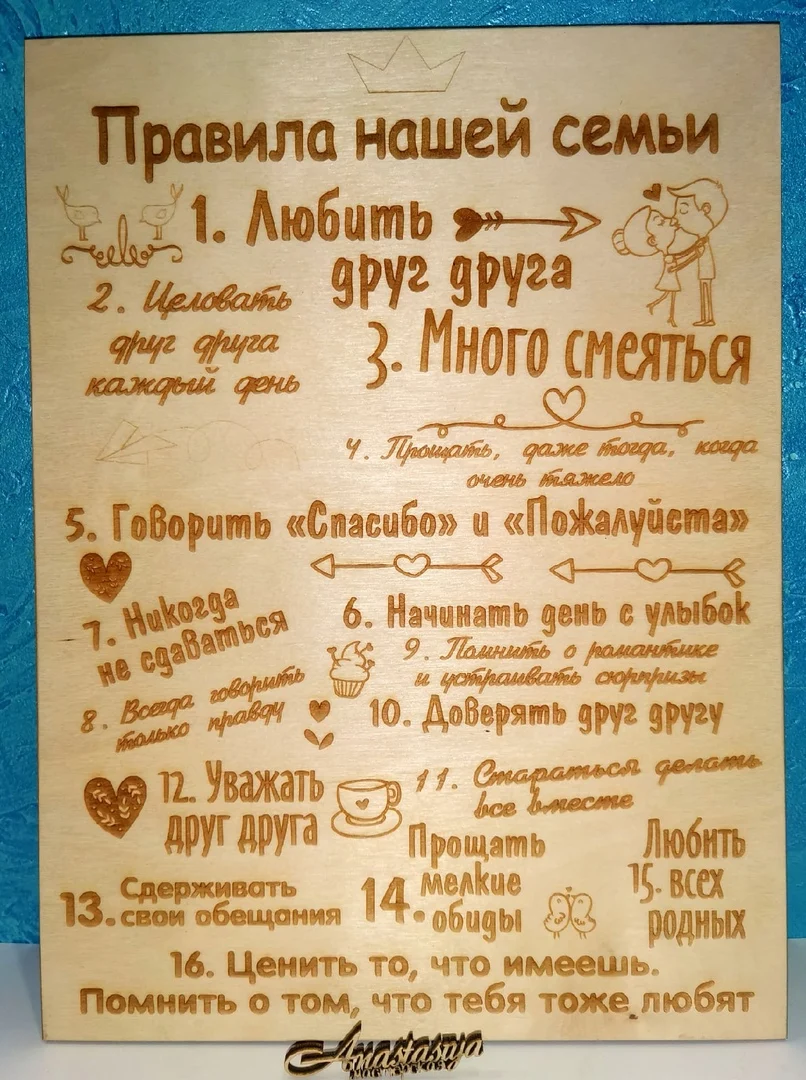 Правила нашей семьи
1. Любить
друг друга
2. Целовать
друг друга
каждый день
3. Много смеяться
4. Прощать, даже тогда, когда
очень тяжело
5. Говорить «Спасибо» и «Пожалуйста»
6. Начинать день с улыбок
7. Никогда
не сдаваться
8. Всегда говорить
только правду
9. Помнить о романтике
и устраивать сюрпризы
10. Доверять друг другу
11. Стараться делать
все вместе
12. Уважать
друг друга
13. Сдерживать
свои обещания
14. Прощать
мелкие
обиды
15. Любить
всех
родных
16. Ценить то, что имеешь.
Помнить о том, что тебя тоже любят
Anastasiya